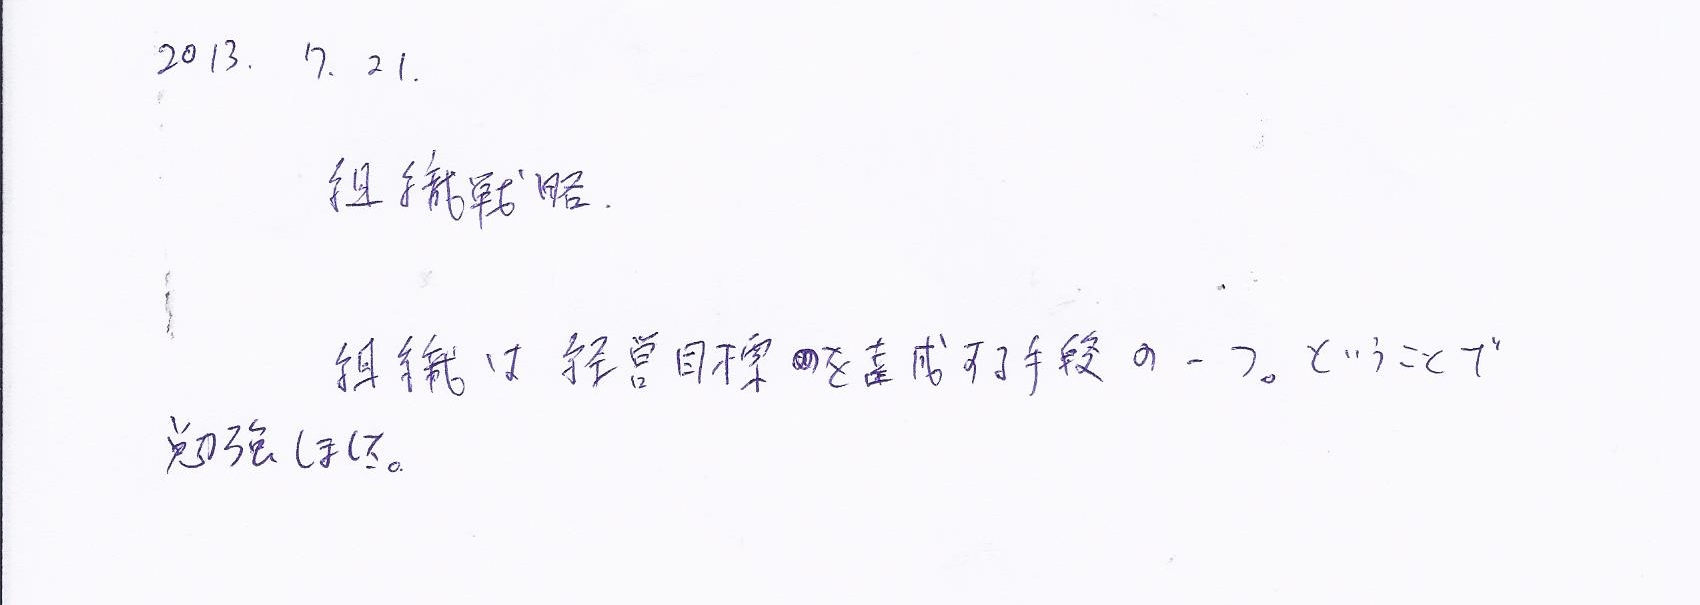 2013. 7. 21.
組織戦略.
組織は経営目標を達成する手段の一つ。ということで
勉強しました。